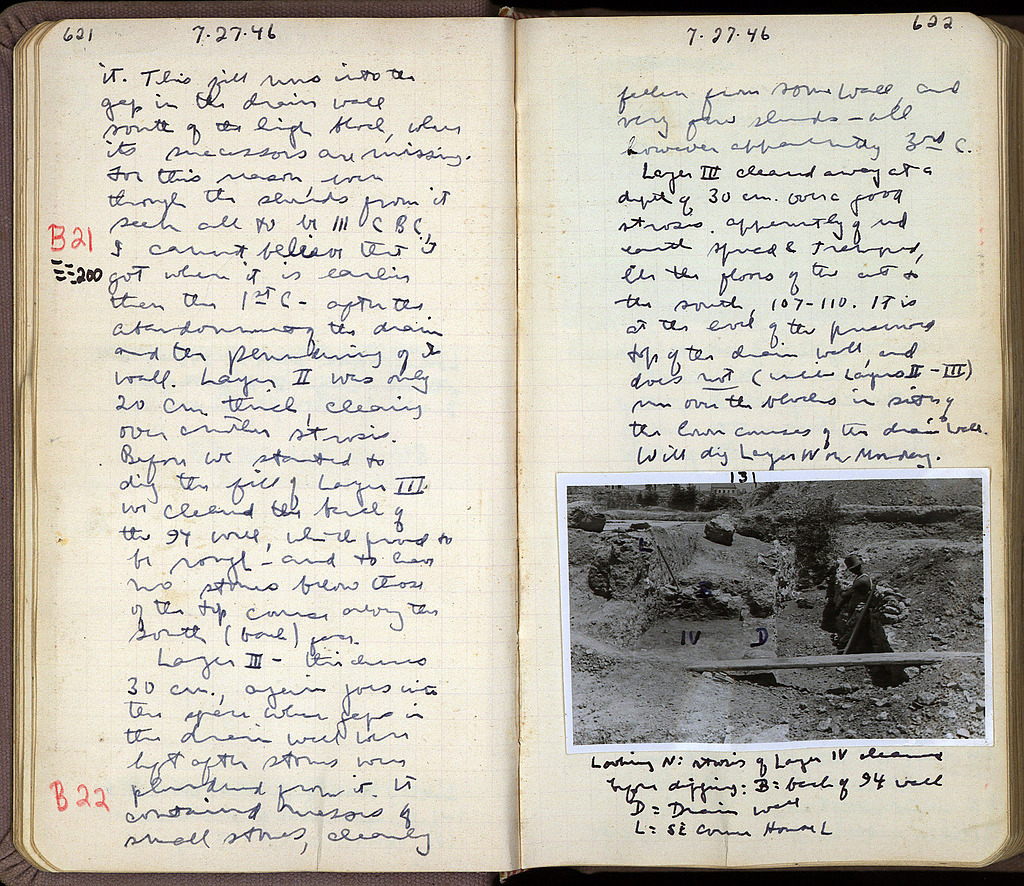 621
7·27·46
it. This fill runs into the
gap in the drain wall
south of the high block, where
its successors are missing.
For this reason, even
through the sherds from it
seem all to be III C BC,
B21
I cannot believe that it
200
got where it is earlier
than the 1st C - after the
abandonment of the drain
and the plundering of its
wall. Layer II was only
20 cm thick, clearing
over another strosis.
Before we started to
dig the fill of Layer III
we cleared the back of
the 94 wall, which proved to
be rough - and to have
no stones below those
of the top course along the
south (back) face.
Layer III - thickness
30 cm., again goes into
the space where gaps in
the drain wall were
left after stones were
B22
plundered from it. It
contained masses of
small stones, clearly
7·27·46
622
fallen from some wall, and
very few sherds - all
however apparently 3rd C.
Layer III cleared away at a
depth of 30 cm. over a good
strosis, apparently of red
earth spread & tramped,
like the floors of the cut to
the south, 107-110. It is
at the level of the preserved
top of the drain wall, and
does not (unlike Layers II - III)
run over the blocks in situ of
the lower courses of the drain wall.
Will dig Layer IV on Monday.
131
L
B
IV
D
Looking N: strosis of Layer IV cleaned
before digging: B = back of 94 wall
D = Drain wall
L = SE corner House L